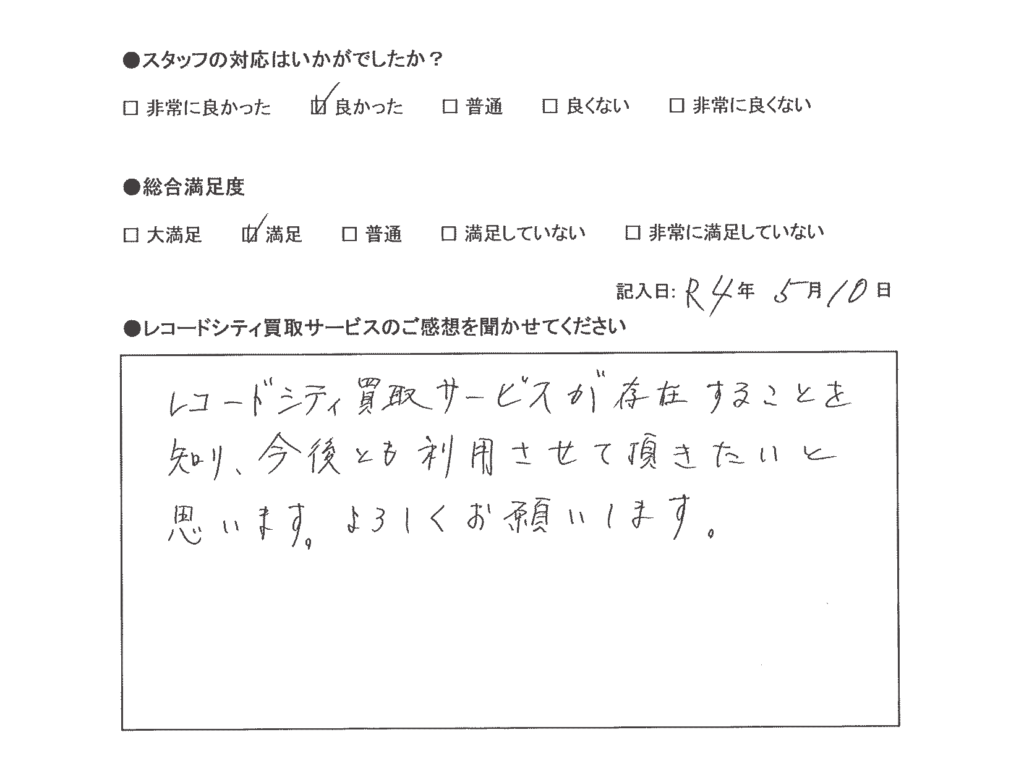 ●スタッフの対応はいかがでしたか？
□ 非常に良かった ☑ 良かった □ 普通 □ 良くない □ 非常に良くない
●総合満足度
□ 大満足 ☑ 満足 □ 普通 □ 満足していない □ 非常に満足していない
記入日: R4年 5月10日
●レコードシティ買取サービスのご感想を聞かせてください
レコードシティ買取サービスが存在することを
知り、今後とも利用させて頂きたいと
思います。よろしくお願いします。